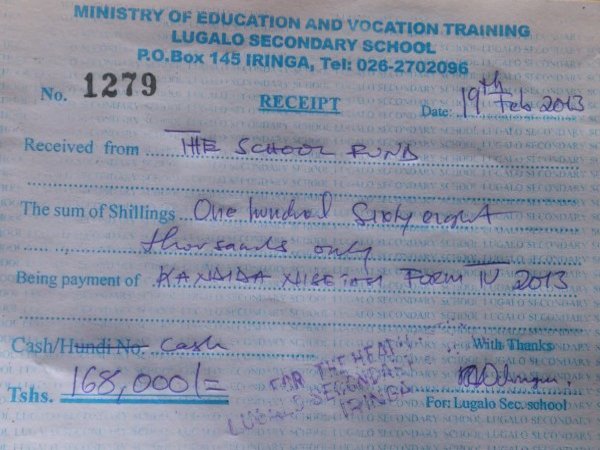 MINISTRY OF EDUCATION AND VOCATION TRAINING
LUGALO SECONDARY SCHOOL
P.O.Box 145 IRINGA, Tel: 026-2702096
No. 1279
RECEIPT
Date: 19th Feb 2013
Received from THE SCHOOL FUND
The sum of Shillings One hundred Sixty eight
thousands only
Being payment of FORM IV 2013
Cash/Hundi No. Cash
With Thanks
Tshs. 168,000/=
FOR THE HEAD
LUGALO SECONDARY
IRINGA
For: Lugalo Sec. school